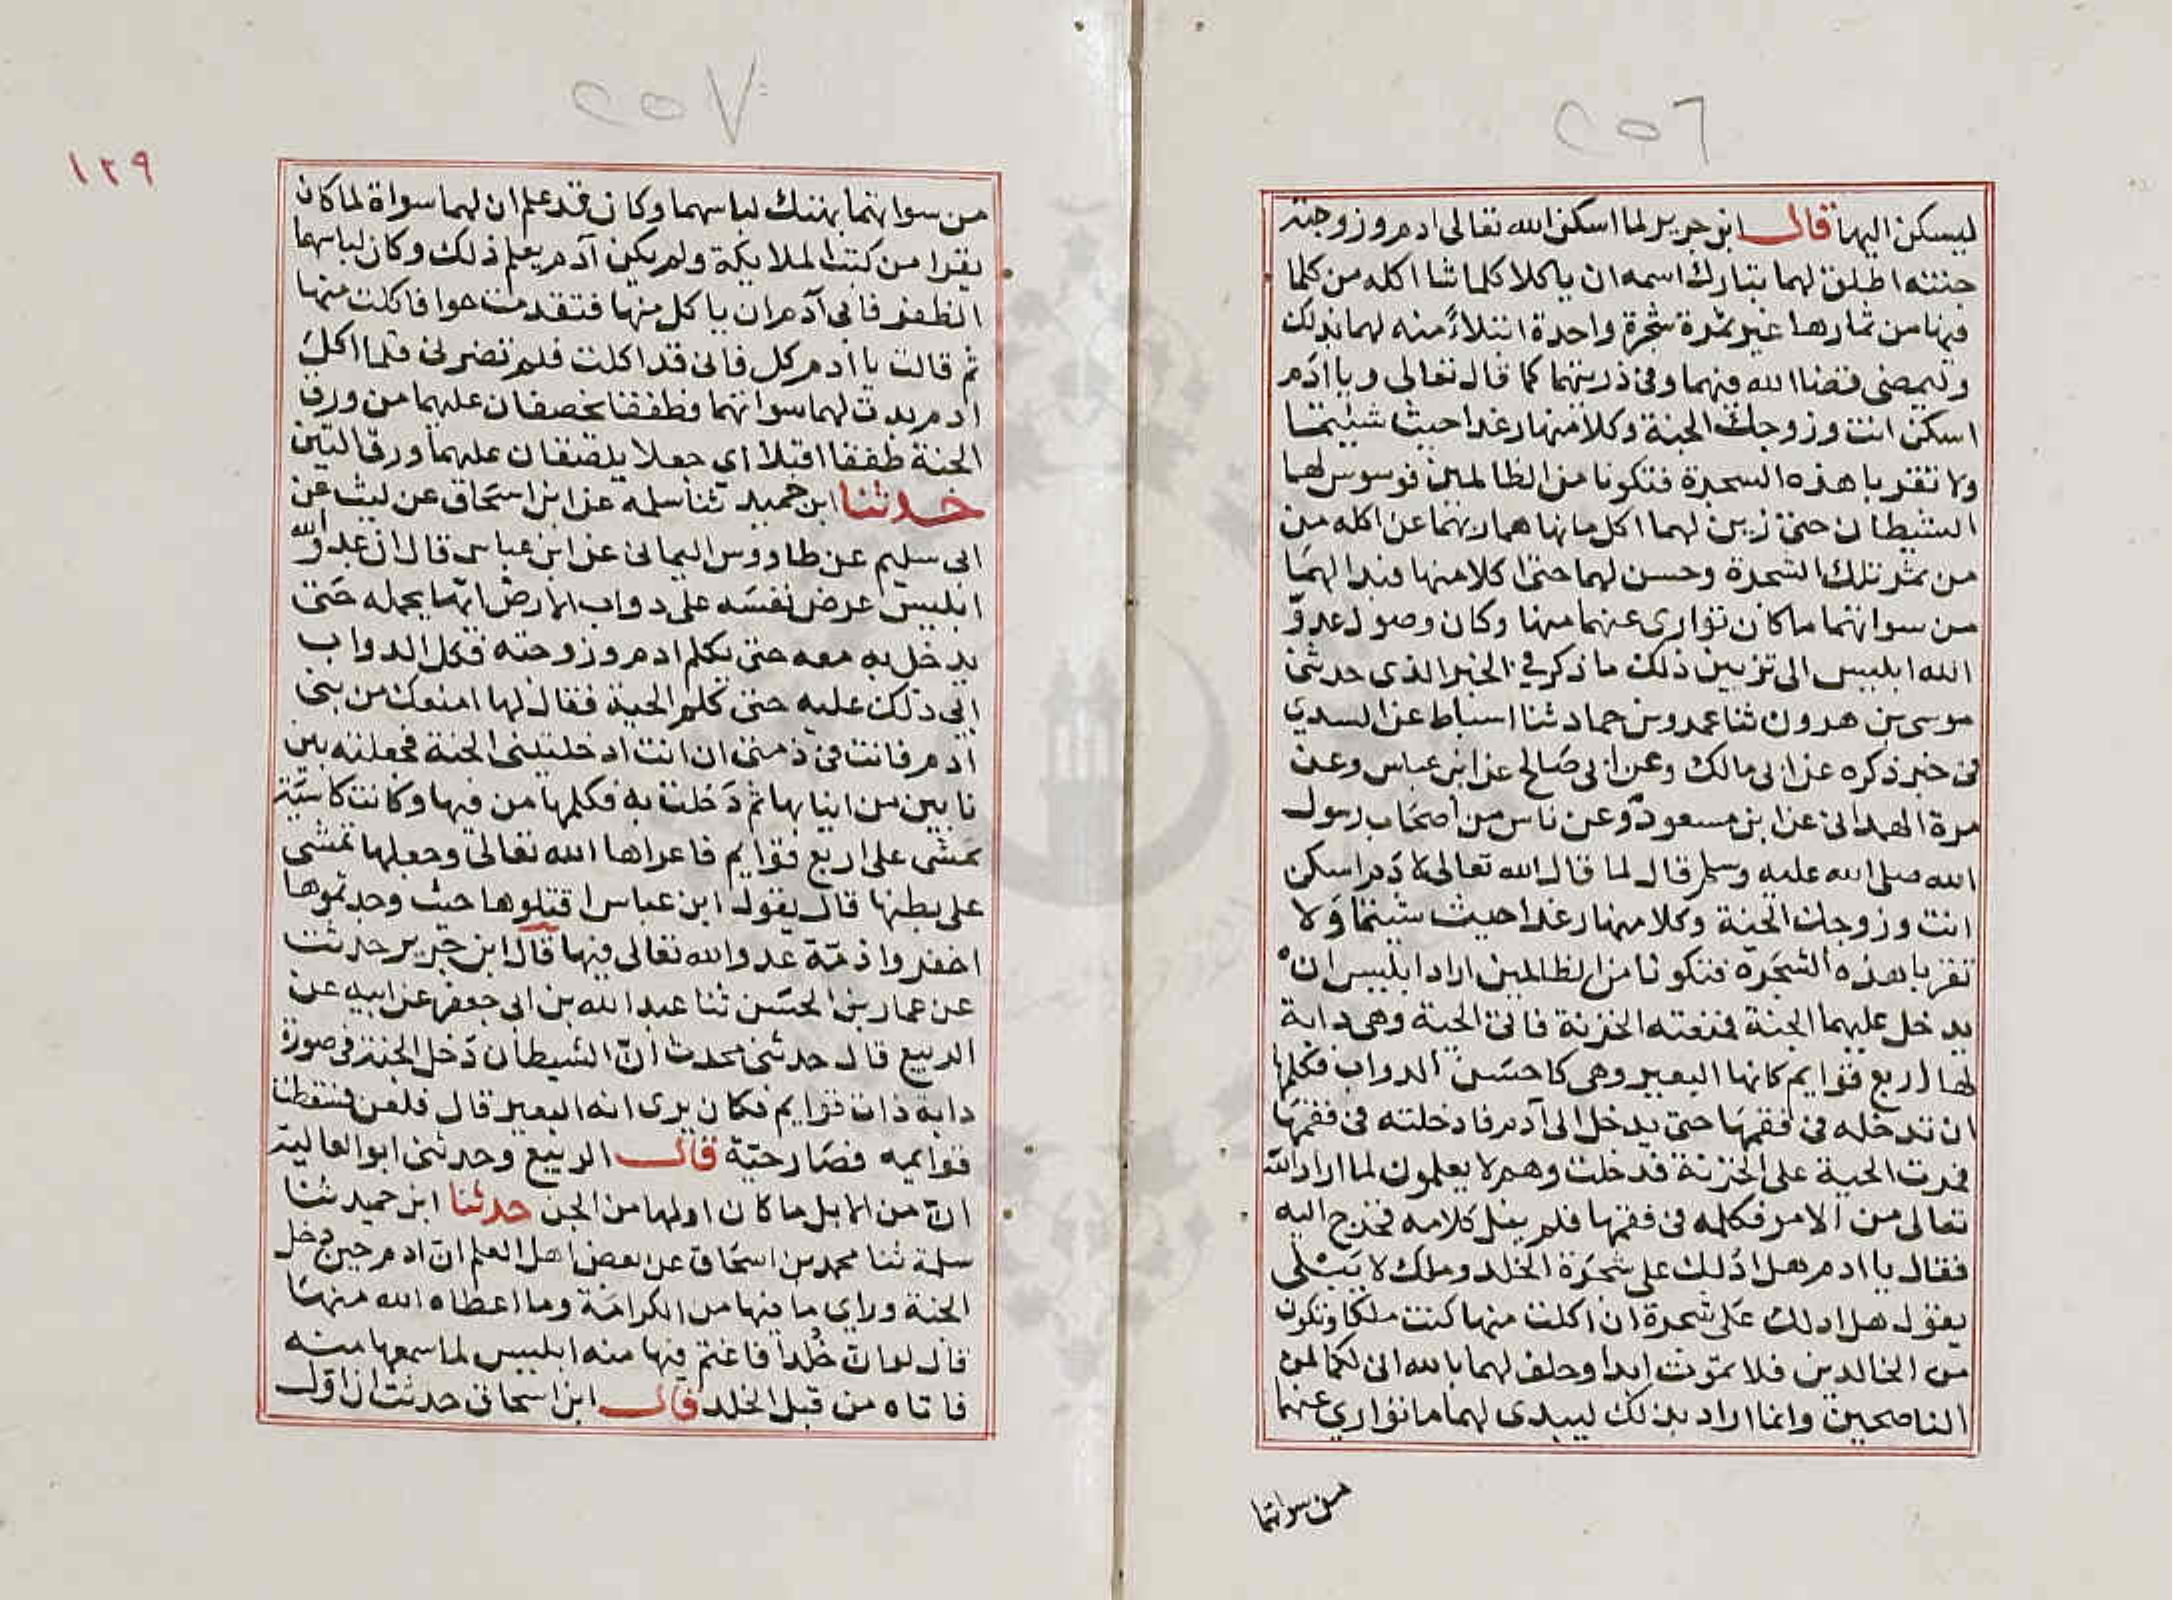 ٢٥٦
ليسكن اليها قال ابن جرير لما اسكن الله تعالى ادم وزوجته
جنته اطلق لهما تبارك اسمه ان ياكلا كلما شا اكله من كلما
فيها من ثمارها غير ثمرة شجرة واحدة ابتلاء منه لهما بذلك
وليمضى قضا الله فيهما وفى ذريتهما كما قال تعالى ويا ادم
اسكن انت وزوجك الجنة وكلا منها رغدا حيث شيتما
ولا تقربا هذه الشجرة فتكونا من الظالمين فوسوس لهما
الشيطان حتى زين لهما اكل ما نهاهما ربهما عن اكله من
من ثمر تلك الشجرة وحسن لهما حتى اكلا منها فبدا لهما
من سواتهما ما كان توارى عنهما منها وكان وصول عدو
الله ابليس الى تزيين ذلك ما ذكر في الخبر الذى حدثنى
موسى بن هرون ثنا عمرو بن حماد ثنا اسباط عن السدي
فى خبر ذكره عن ابى مالك وعن ابى صالح عن ابن عباس وعن
مرة الهمدانى عن ابن مسعود وعن ناس من اصحاب رسول
الله صلى الله عليه وسلم قال لما قال الله تعالى لادم اسكن
انت وزوجك الجنة وكلا منها رغدا حيث شيتما ولا
تقربا هذه الشجرة فتكونا من الظالمين اراد ابليس ان
يدخل عليهما الجنة فمنعته الخزنة فاتى الحية وهى دابة
لها اربع قوايم كانها البعير وهى كاحسن الدواب فكلمها
ان تدخله فى فقمها حتى يدخل الى آدم فادخلته فى فقمها
فمرت الحية على الخزنة فدخلت وهم لا يعلمون لما اراد الله
تعالى من الامر فكلمه فى فقمها فلم يبل كلامه فخرج اليه
فقال يا ادم هل ادلك على شجرة الخلد وملك لا يبلى
يقول هل ادلك على شجرة ان اكلت منها كنت ملكا وتكون
من الخالدين فلا تموت ابدا وحلف لهما بالله انى لكما لمن
الناصحين وانما اراد بذلك ليبدى لهما ما تواري عنهما
من سواتهما
٢٥٧
١٢٩
من سواتهما بهتك لباسهما وكان قد علم ان لهما سواة لما كان
يقرا من كتب الملايكة ولم يكن آدم يعلم ذلك وكان لباسهما
الظفر فابى آدم ان ياكل منها فتقدمت حوا فاكلت منها
ثم قالت يا ادم كل فانى قد اكلت فلم تضرنى فلما اكل
ادم بدت لهما سواتهما فطفقا يخصفان عليهما من ورق
الجنة طفقا اقبلا اي جعلا يلصقان عليهما ورق التين
حدثنا ابن حميد ثنا سلمه عن ابن اسحاق عن ليث عن
ابى سليم عن طاووس اليمانى عن ابن عباس قال ان عدو الله
ابليس عرض نفسه على دواب الارض ايها يحمله حتى
يدخل به معه حتى يكلم ادم وزوجته فكل الدواب
ابى ذلك عليه حتى كلم الحية فقال لها امنعك من بنى
ادم فانت فى ذمتى ان انت ادخلتينى الجنة فجعلته بين
نابين من انيابها ثم دخلت به فكلمها من فيها وكانت كاسية
تمشى على اربع قوايم فاعراها الله تعالى وجعلها تمشى
على بطنها قال يقول ابن عباس اقتلوها حيث وجدتموها
اخفروا ذمة عدو الله تعالى فيها قال ابن جرير حدثت
عن عمار بن الحسن ثنا عبد الله بن ابى جعفر عن ابيه عن
الربيع قال حدثنى محدث ان الشيطان دخل الجنة فى صورة
دابة ذات قوايم فكان يرى انه البعير قال فلعن فسقطت
قوايمه فصار حية قال الربيع وحدثنى ابو العالية
ان من الابل ما كان اولها من الجن حدثنا ابن حميد ثنا
سلمة ثنا محمد بن اسحاق عن بعض اهل العلم ان ادم حين دخل
الجنة وراى ما فيها من الكرامة وما اعطاه الله منها
قال لو ان خلدا فاغتم فيها منه ابليس لما سمعها منه
فاتاه من قبل الخلد قال ابن اسحاق حدثت ان اول